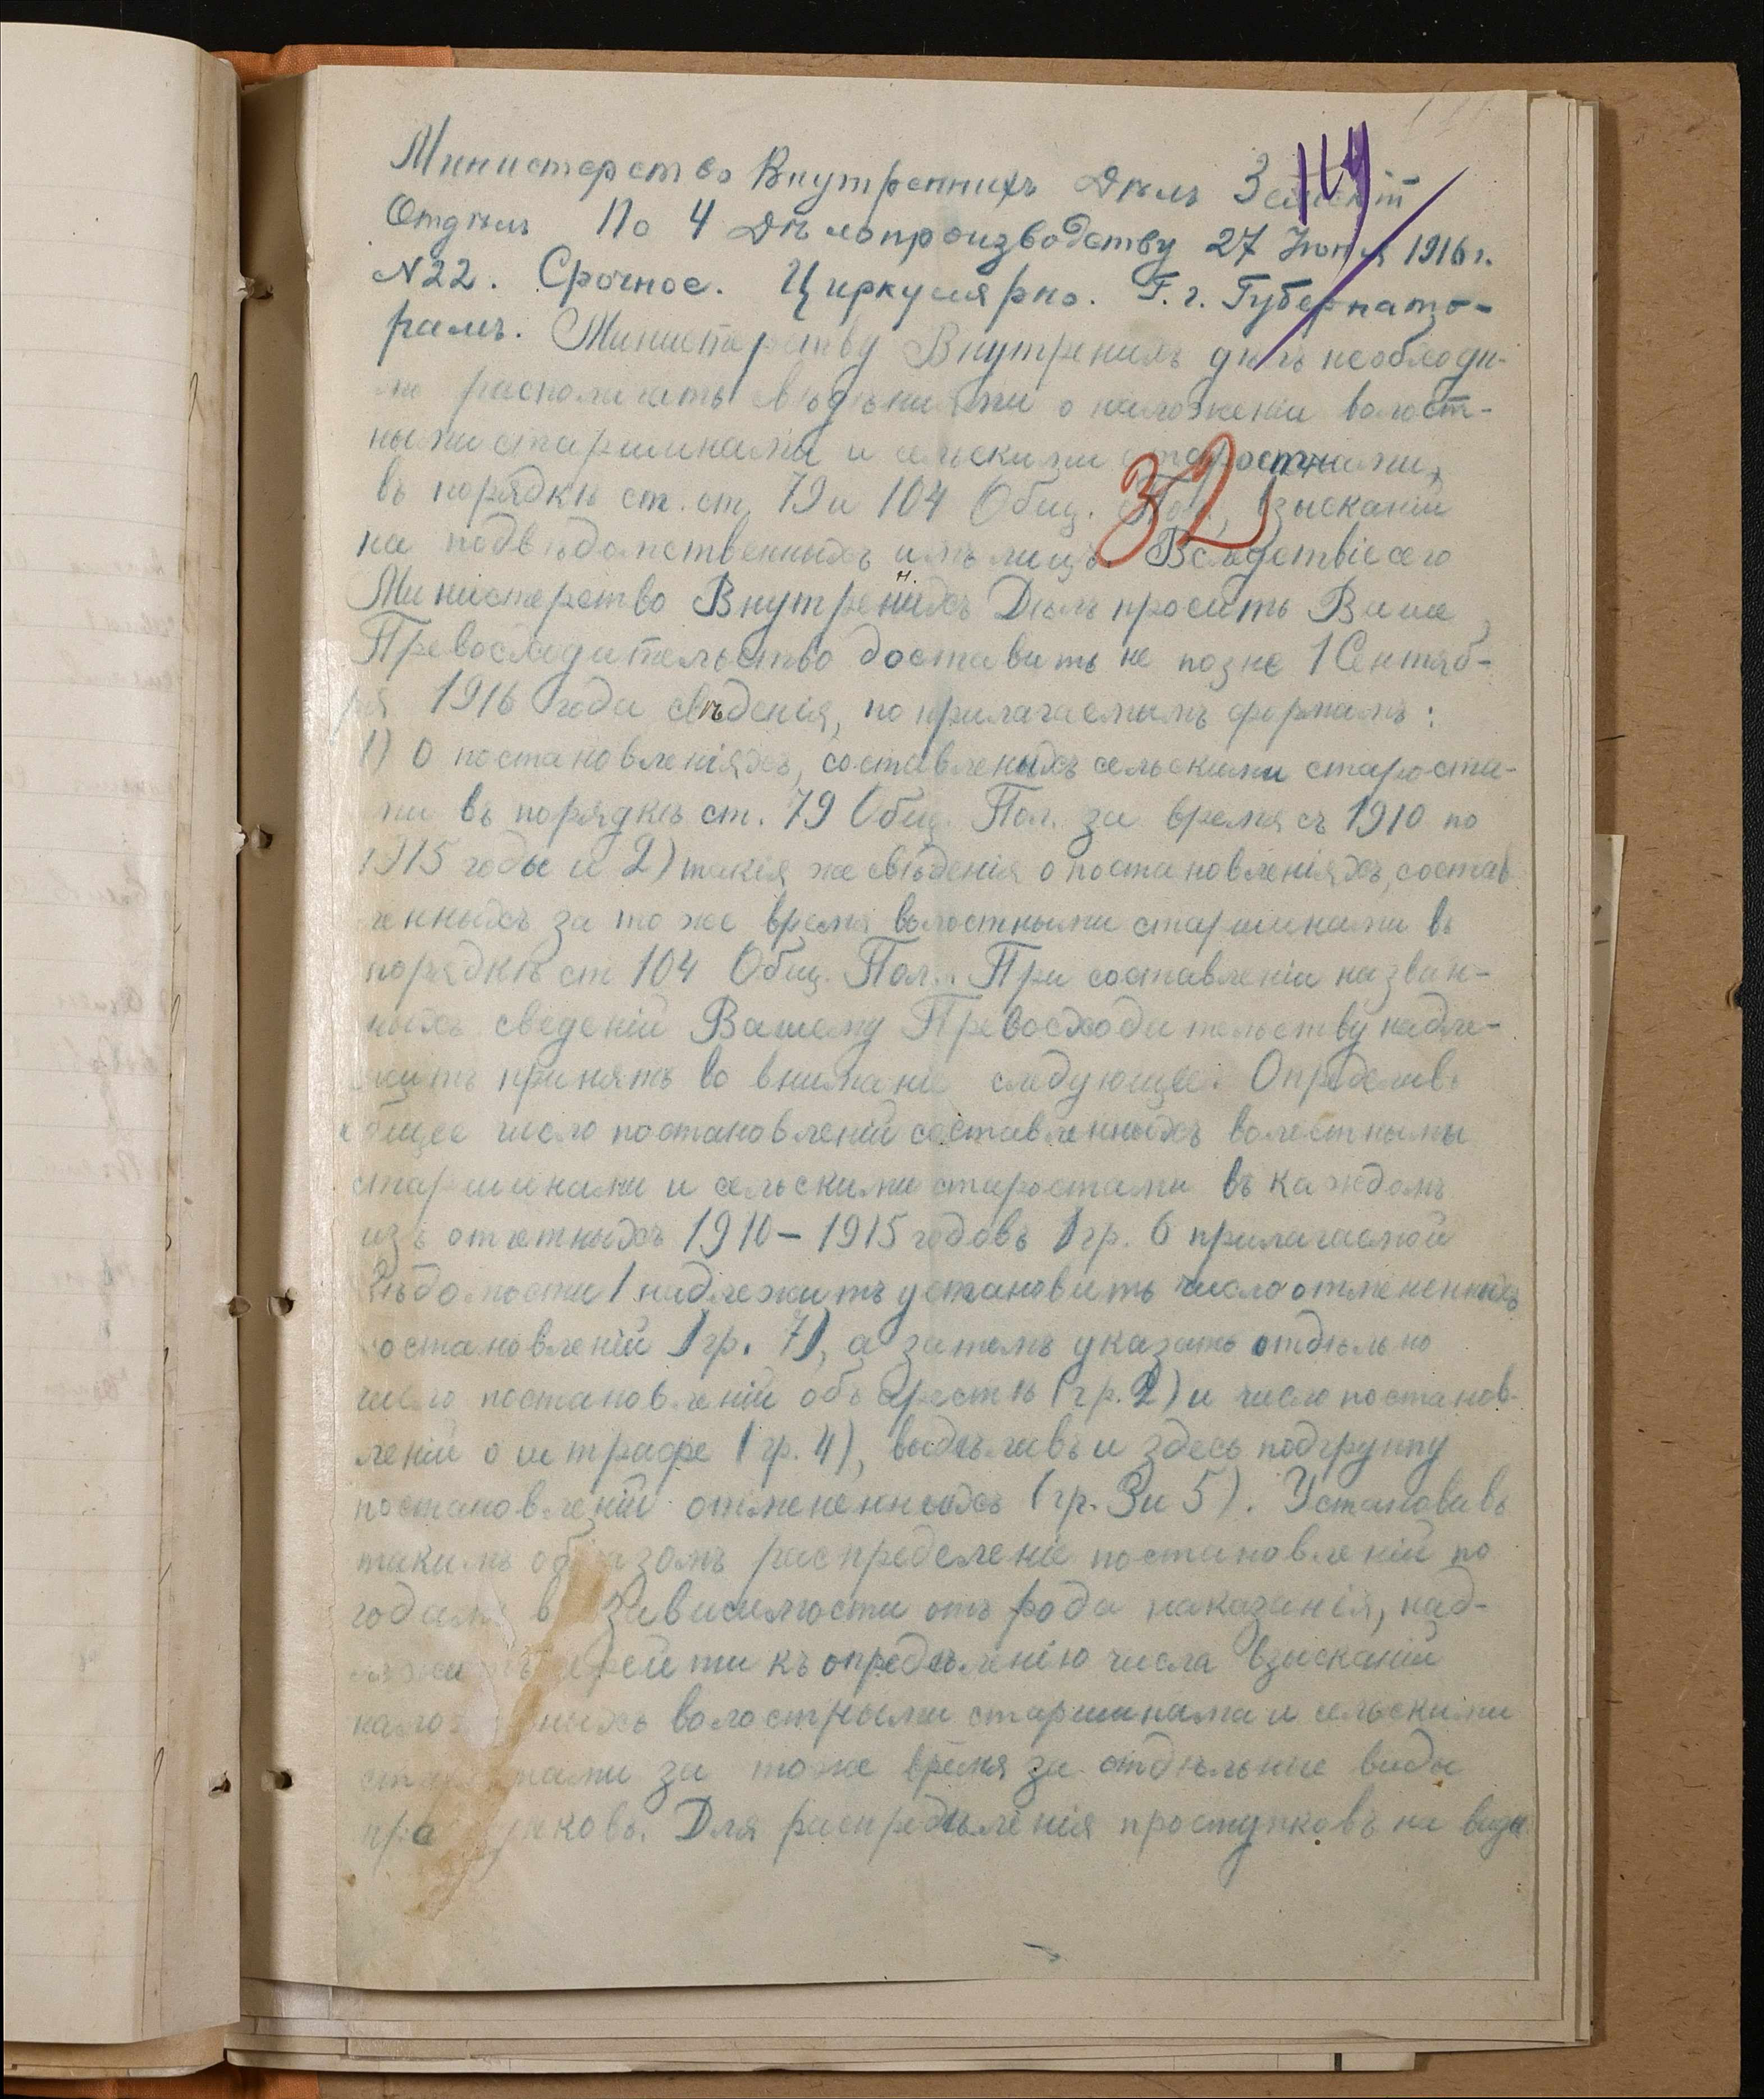 114
Министерство Внутреннихъ Дѣлъ Земскій
Отдѣлъ По 4 Дѣлопроизводству 27 Іюня 1916 г.
N 22. Срочное. Циркулярно. Г. г. Губернато-
рамъ. Министерству Внутренихъ дѣлъ необходи-
мо располагать свѣдѣніями о наложеніи волост-
ными старшинами и сельскими старостами,
32
въ порядкѣ ст. ст. 79 и 104 Общ. Пол., взысканій
на подвѣдомственныхъ имъ лицъ. Вслѣдствіе сего
Министерство Внутреннихъ Дѣлъ проситъ Ваше
Превосходительство доставить не позне 1 Сентяб-
ря 1916 года свѣденія, по прилагаемымъ формамъ:
1) О постановленіяхъ, составленыхъ сельскими староста-
ми въ порядкѣ ст. 79 Общ. Пол. за время съ 1910 по
1915 годы и 2) такія же свѣденія о постановленіяхъ, состав
ленныхъ за то же время волостными старшинами въ
порядкѣ ст 104 Общ. Пол.. При составленіи назван-
ныхъ сведеній Вашему Превосходительству надле-
житъ принять во внимание следующее: Определивъ
общее число постановленій составленныхъ волостными
старшинами и сельскими старостами въ каждомъ
изъ отчетныхъ 1910 - 1915 годовъ /гр. 6 прилагаемой
Вѣдомости/ надлежитъ установить число отмененныхъ
постановленій /гр. 7/, а затемъ указать отдѣльно
число постановленій объ арестѣ (гр. 2) и число постанов-
леній о штрафе (гр. 4), выдѣливъ и здесь подгруппу
постановленій отмененныхъ (гр. 3 и 5). Установивъ
такимъ образомъ распределеніе постановленій по
годамъ в зависимости отъ рода наказанія, над-
лежитъ перейти къ опредѣленію числа взысканій
наложенныхъ волостными старшинами и сельскими
старостами за тоже время за отдѣльные виды
проступковъ. Для распредѣленія проступковъ на виды